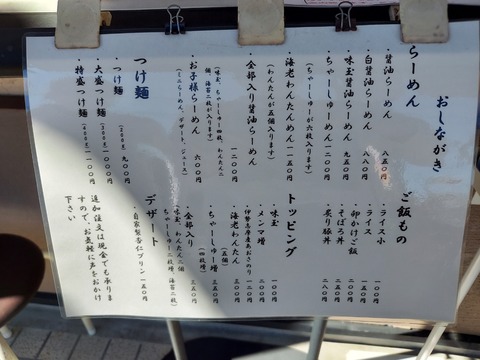 おしながき
らーめん
・醤油らーめん 八五〇円
・白醤油らーめん 八八〇円
・味玉醤油らーめん 九五〇円
・ちゃーしゅーめん 一二〇〇円
(ちゃーしゅーが六枚入ります)
・海老わんたんめん 一一五〇円
(わんたんが五個入ります)
・全部入り醤油らーめん 一二〇〇円
(味玉、ちゃーしゅー四枚、わんたん二個、海苔二枚が入ります)
・お子様らーめん 六〇〇円
(ミニらーめん、デザート、ジュース)
つけ麺
・つけ麺 (200g) 九〇〇円
・大盛つけ麺 (300g) 一〇〇〇円
・特盛つけ麺 (400g) 一一〇〇円
ご飯もの
・ライス小 一〇〇円
・ライス 一五〇円
・卵かけご飯 二〇〇円
・そぼろ丼 二五〇円
・炙り豚丼 二八〇円
トッピング
・味玉 一〇〇円
・メンマ増 一五〇円
・伊勢志摩産あおさのり 二〇〇円
・海老わんたん (五個) 三〇〇円
・ちゃーしゅー増 (四枚増) 三五〇円
・全部入り 三五〇円
(味玉、わんたん二個、ちゃーしゅー二枚増、海苔二枚)
デザート
・自家製杏仁プリン 一五〇円
追加注文は現金でも承りますので、お気軽に声をおかけ下さい